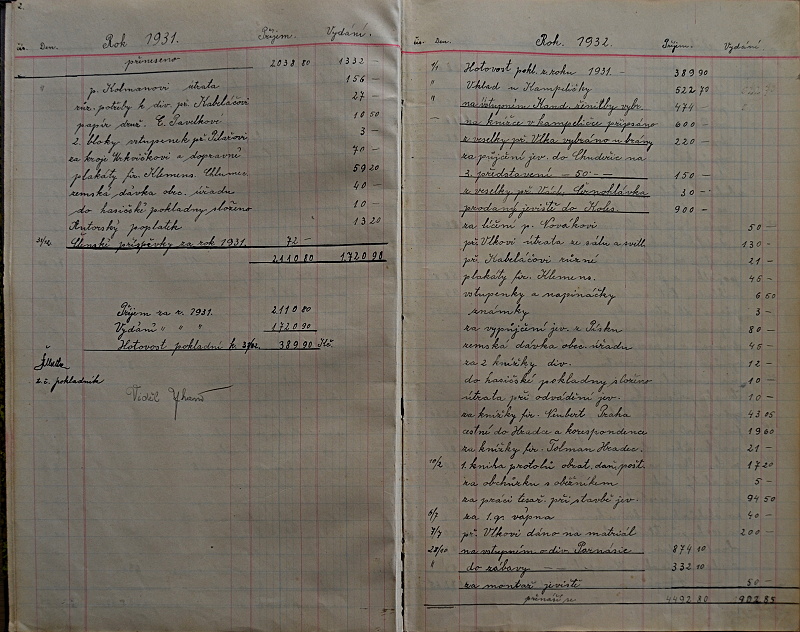 2.
Rok 1931.
čís. Den. Příjem. Vydání.
přineseno 2038 80 1332 –
" p. Kolmanovi útrata 156 –
růz. potřeby k div. př. Kabeláčovi 27 –
papír druž. Č. Pavelkovi 10 50
2. bloky vstupenek př. Pilařovi 3 –
za kroje Vrkvičkovi a dopravní 70 –
plakáty fir. Klemens. Chlumec 59 20
zemská dávka obec. úřadu 40 –
do hasičské pokladny složeno 10 –
Autorský poplatek 13 20
31/12. Členské příspěvky za rok 1931. 72 –
2110 80 1720 90
Příjem za r. 1931. 2110 80
Vydání " " " 1720 90
Hotovost pokladní k 31/12. 389 90 Kč.
t. č. pokladník
Viděl
Rok. 1932.
čís. Den. Příjem. Vydání
1/1 Hotovost pokl. z roku 1931. – 389 90
" Vklad u Kampeličky 522 70
" na vstupném Kand. ženitby vybr. 474 –
na knížce v kampeličce připsáno 600 –
z veselky př. Vlka vybráno u brány 220 –
za půjčení jev. do Chudeřic na
3. představení – 50 – – 150 –
z veselky př. Vách. Černohlávka 30 –
prodaný jeviště do Koles. 900 –
za líčení p. Novákovi 50 –
př. Vlkovi útrata ze sálu a světl 130 –
př. Kabeláčovi různé 21 –
plakáty fir. Klemens. 45 –
vstupenky a napínáčky 6 50
známky 3 –
za vypůjčení jev. z Písku 80 –
zemská dávka obec. úřadu 45 –
za 2 knížky div. 12 –
do hasičské pokladny složeno 10 –
útrata při odvádění jev. 10 –
za knížky fir. Neubert Praha 43 05
cestné do Hradce a korespondence 19 60
za knížky fir. Tolman Hradec. 21 –
10/2 1. kniha protolů obrat. daň. pošt. 17 20
za obchůzku s oběžníkem 5 –
za práci tesař. při stavbě jev. 94 50
6/7 za 1. q. vápna 40 –
7/7 př. Vlkovi dáno na matriál 200 –
28/10 na vstupném o div. Poznáníe 874 10
" do zábavy – – 332 10
za montaž jeviště 50 –
přenáší se 4492 80 902 85